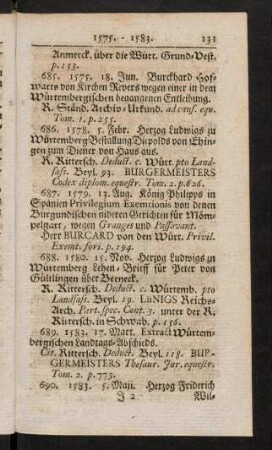 1575. - 1583. 135
Anmerck. über die Würt. Grund-Vest.
p. 153.
685. 1575. 18. Jun. Burckhard Hof-
warts von Kirchen Revers wegen einer in dem
Würtembergischen begangenen Entleihung.
R. Ständ. Archiv-Urkund. ad caus. equ.
Tom. 1. p. 255.
686. 1578. 5. Febr. Herzog Ludwigs zu
Würtemberg Bestallung Dupolds von Ehin-
gen zum Diener von Haus aus.
R. Rittersch. Deduct. c. Würt. pto Land-
sass. Beyl. 93. BURGERMEISTERS
Codex diplom. equestr. Tom. 2. p. 626.
687. 1579. 13. Aug. König Philipps in
Spanien Privilegium Exemtionis von denen
Burgundischen niderer Gerichten für Möm-
pelgart, wegen Granges und Passavant.
Herr BURCARD von den Würt. Privil.
Exemt. fori. p. 194.
688. 1580. 15. Nov. Herzog Ludwigs zu
Würtemberg Lehen-Brieff für Peter von
Gültlingen über Berneck.
R. Rittersch. Deduct. c. Würtemb. pto
Landsass. Beyl. 19. LüNIGS Reichs-
Arch. Part. spec. Cont. 3. unter der R.
Rittersch. in Schwab. p. 156.
689. 1583. 17. Mart. Extract Würtem-
bergischen Landtags-Abschieds.
Cit. Rittersch. Deduct. Beyl. 118. BUR-
GERMEISTERS Thesaur. Jur. equestr.
Tom. 2. p. 773.
690. 1583. 5. Maji. Herzog Friderich
J 2 Wil-